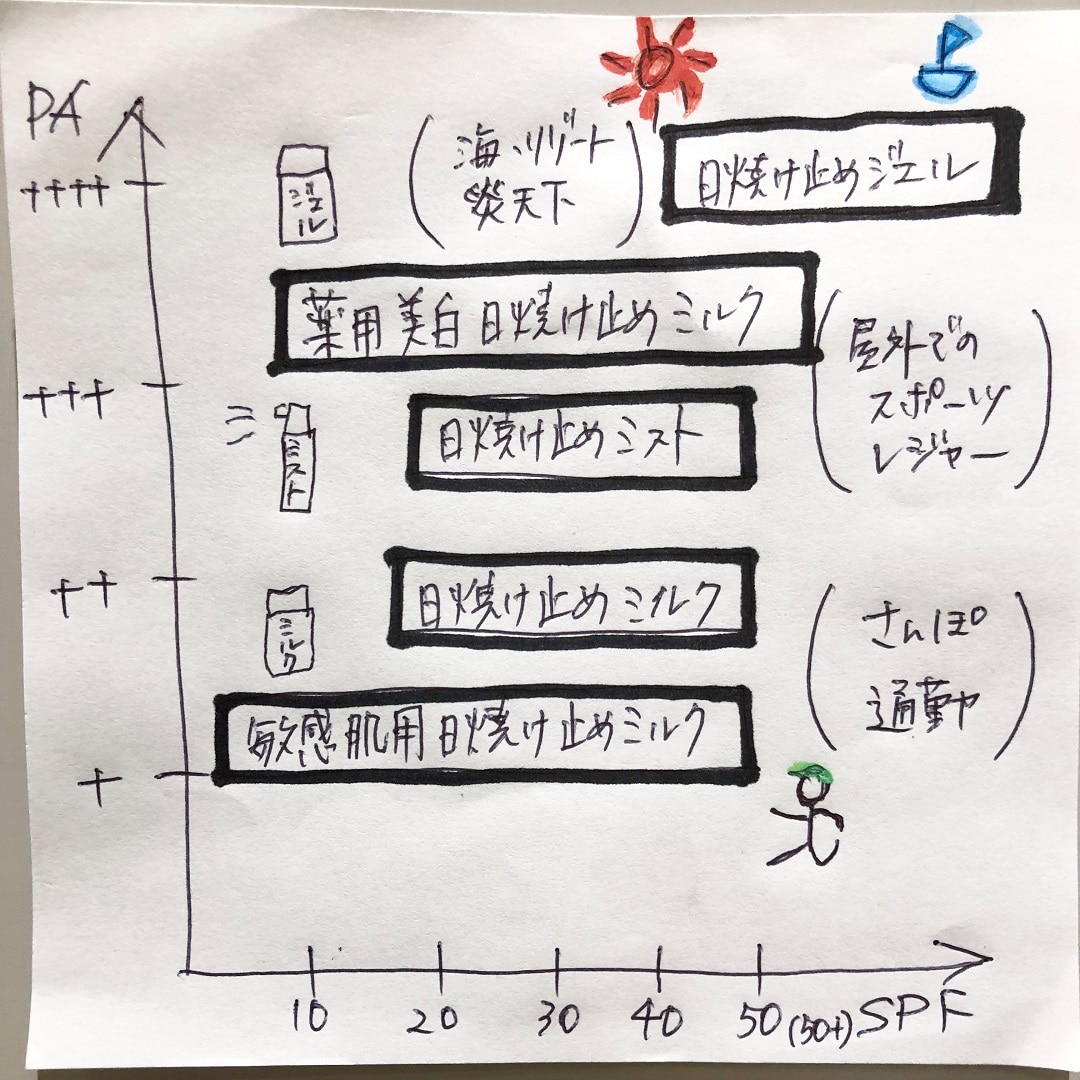 PA
++++
ジェル
(海、リゾート
炎天下)
日焼け止めジェル
薬用美白日焼け止めミルク
(屋外での
スポーツ
レジャー)
+++
ミスト
日焼け止めミスト
++
ミルク
日焼け止めミルク
(さんぽ
通勤や)
敏感肌用日焼け止めミルク
+
10 20 30 40 50(50+) SPF